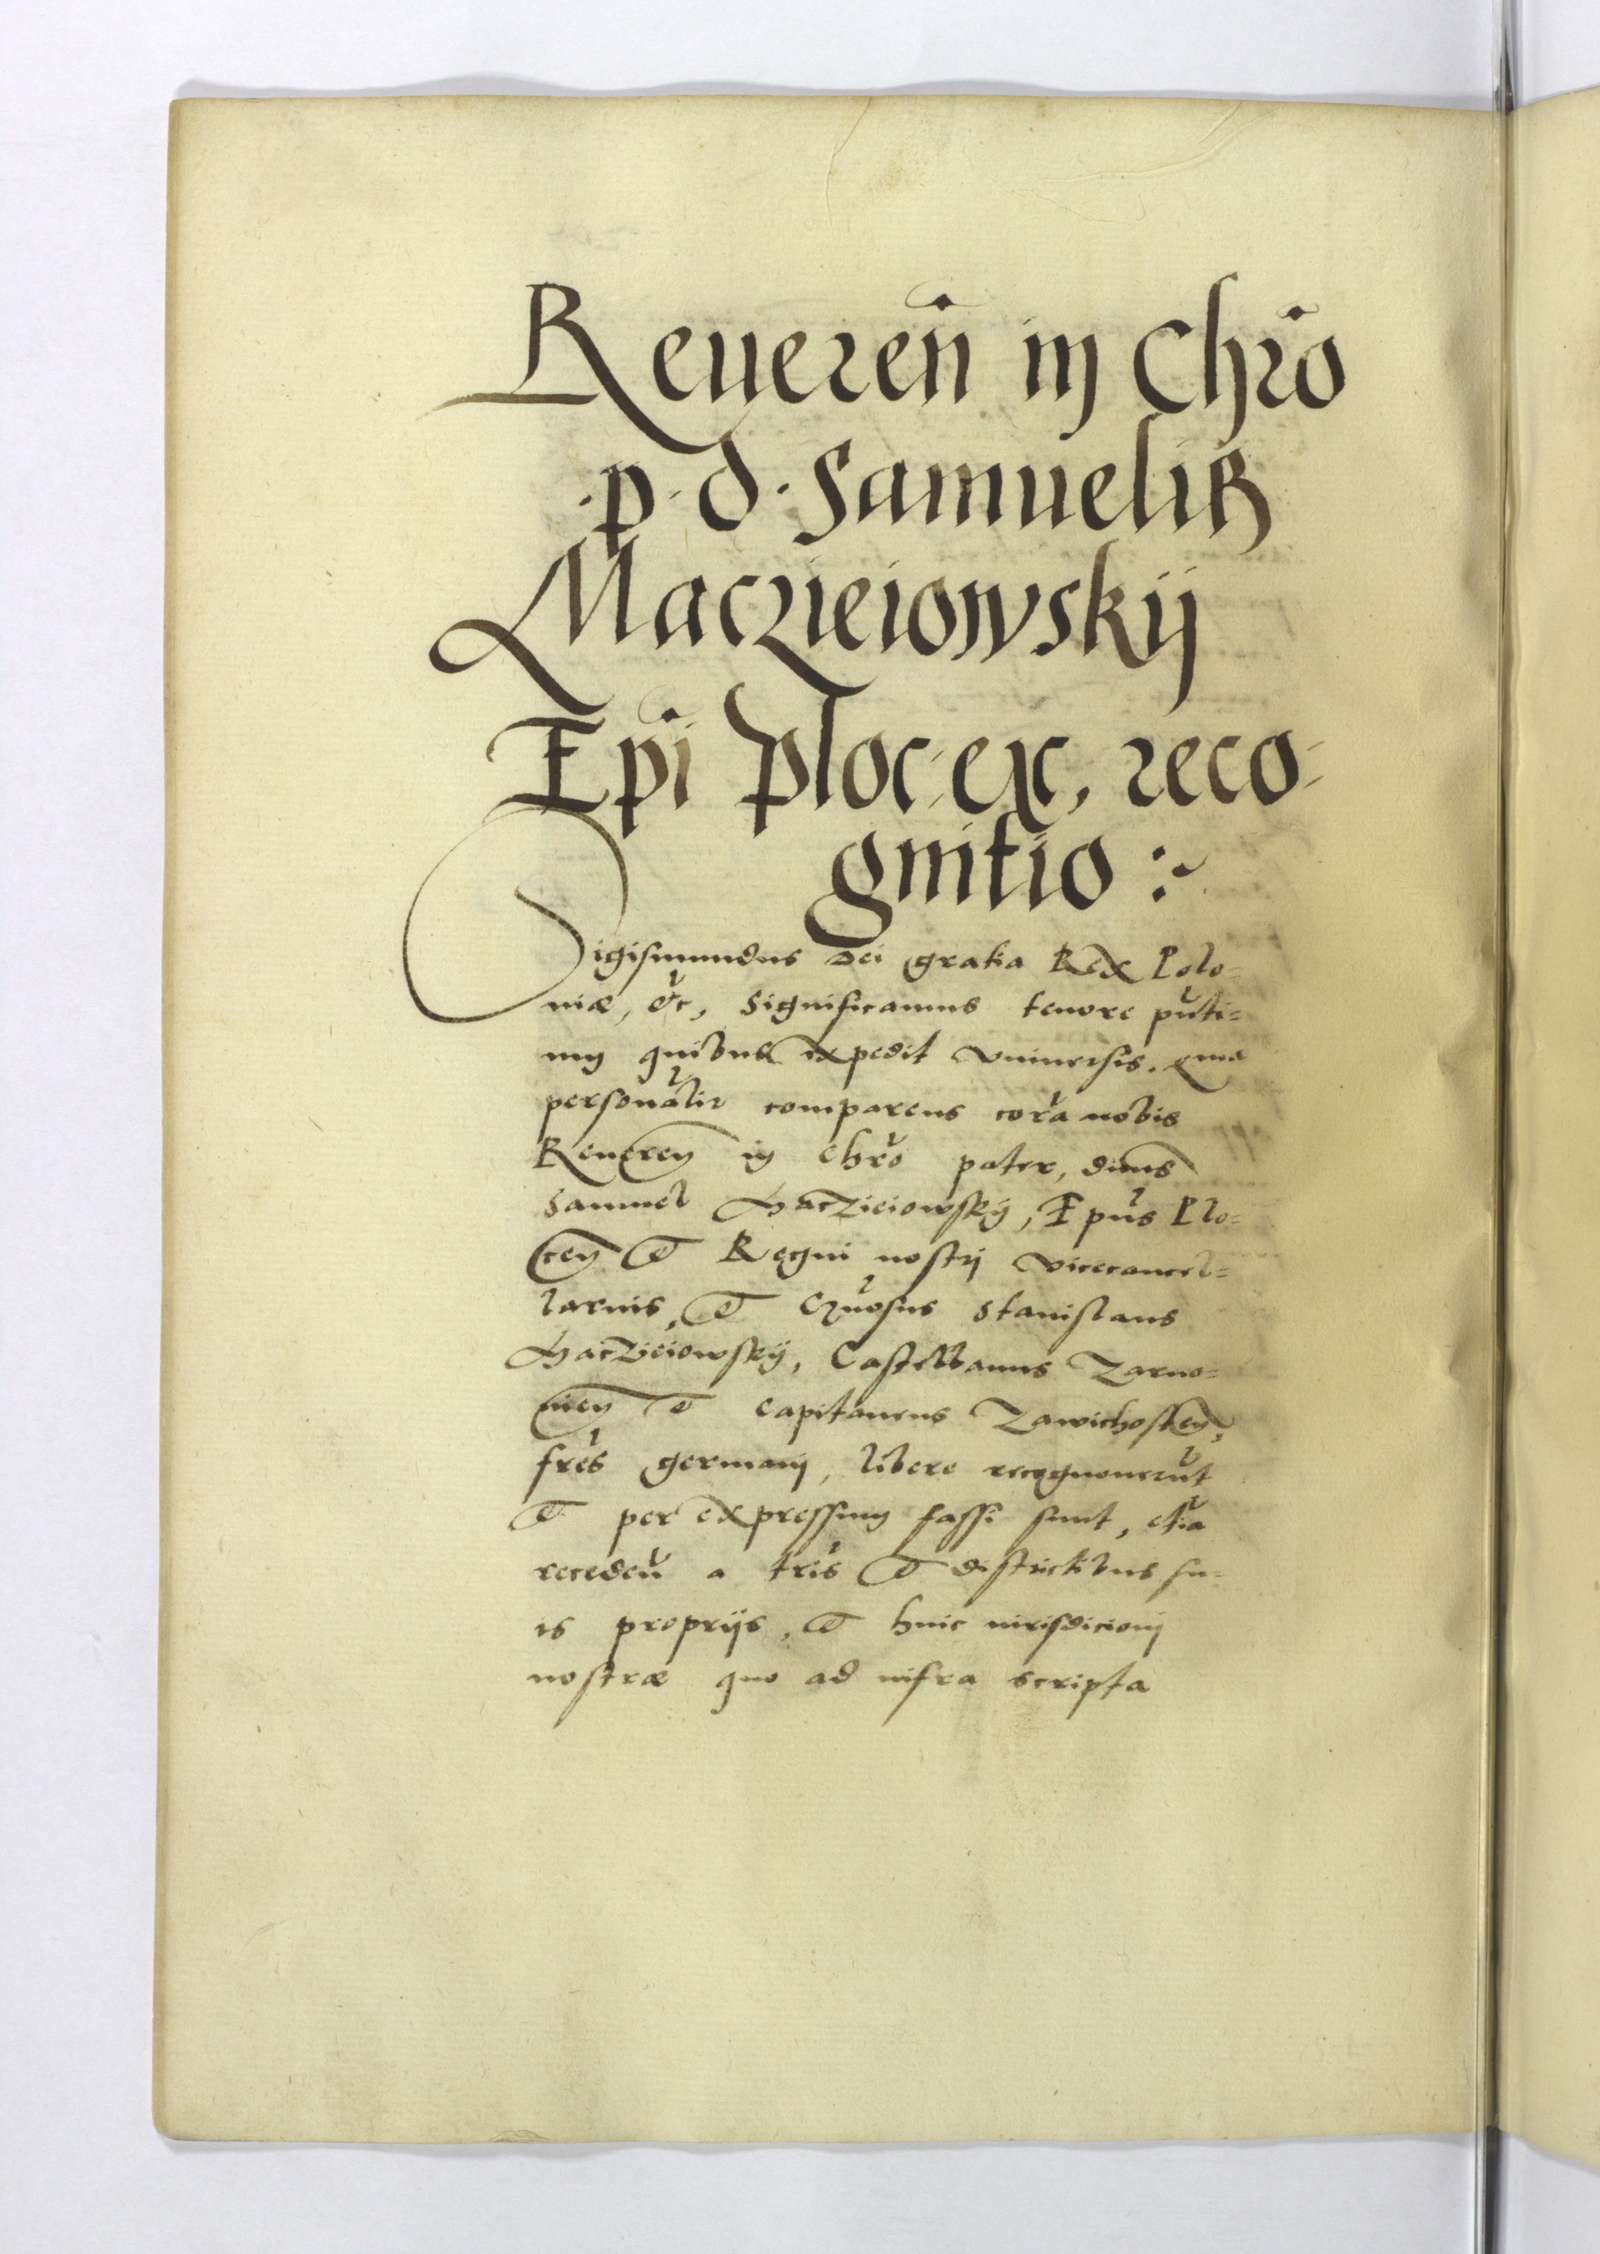 Reueren̄ in Chr̄o
·p· d· Samuelis
Maczieiowskij
Epī ploc: ex, reco-
gnitio :~
Sigismundus Dei gratia Rex Polo=
niæ, etc, Significamus tenore pn̄ti=
um quibus expedit vniuersis. Quia
personalr̄ comparens corā nobis
Reueren in Chr̄o pater, dūus
Samuel Maczieiowskÿ, Epūs Plo=
cen et Regni nostri vicecancel=
larius, et Gn̄osus Stanislaus
Maczieiowskÿ, Castellanus Zarno=
uien et Capitaneus Zawichosten,
frēs germani, libere recognouerūt
et per expressum fassi sunt, etiā
recedeñ a tr̄is et districtibus su=
is proprijs, et huic iurisdicioni
nostræ quo ad infra scripta